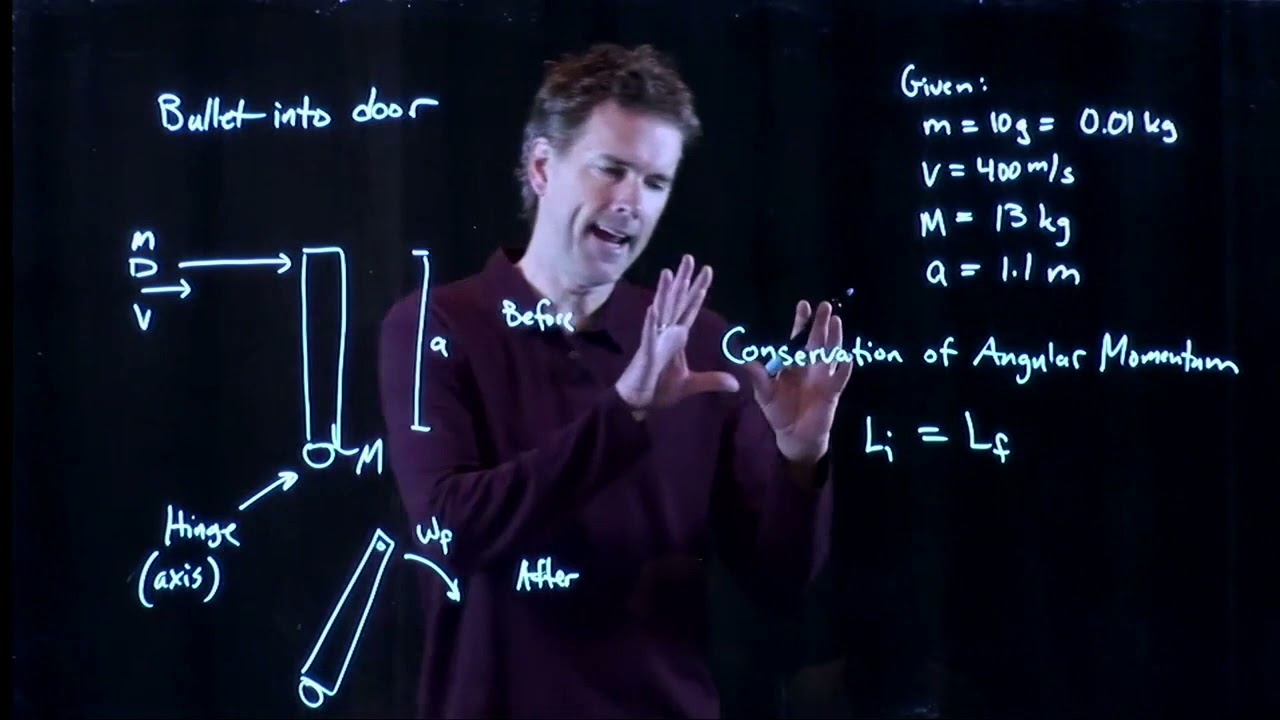 Bullet into door
m
v
a
M
Hinge
(axis)
Before
ωf
After
Given:
m = 10g = 0.01 kg
v = 400 m/s
M = 13 kg
a = 1.1 m
Conservation of Angular Momentum
Li = Lf